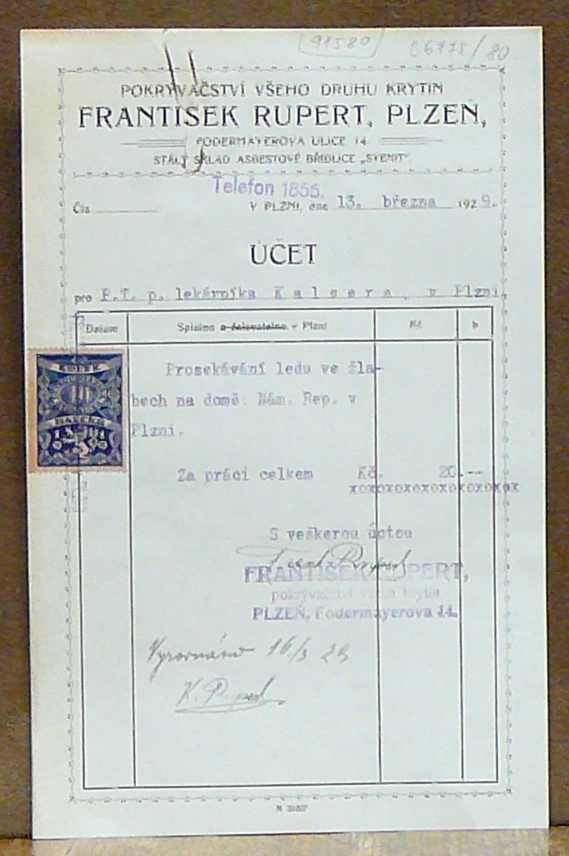 91580
POKRÝVAČSTVÍ VŠEHO DRUHU KRYTIN
FRANTIŠEK RUPERT, PLZEŇ,
FODERMAYEROVA ULICE 14
STÁLÝ SKLAD ASBESTOVÉ BŘIDLICE
Telefon 1855.
Čís.
V PLZNI, dne 13. března 1929.
ÚČET
pro P.T. p. lekárníka Kalsera, v Plzni
Datum Splatno a žalovatelno v Plzni Kč h
Prosekávání ledu ve žla-
bech na domě Nám. Rep. v
Plzni.
KOLEK
MAREK
Za práci celkem Kč. 20.--
xoxoxoxoxoxoxoxoxox
S veškerou úctou
FRANTIŠEK RUPERT,
pokrývačství všeho krytin
PLZEŇ, Fodermayerova 14.
Vyrovnáno 16/3 29